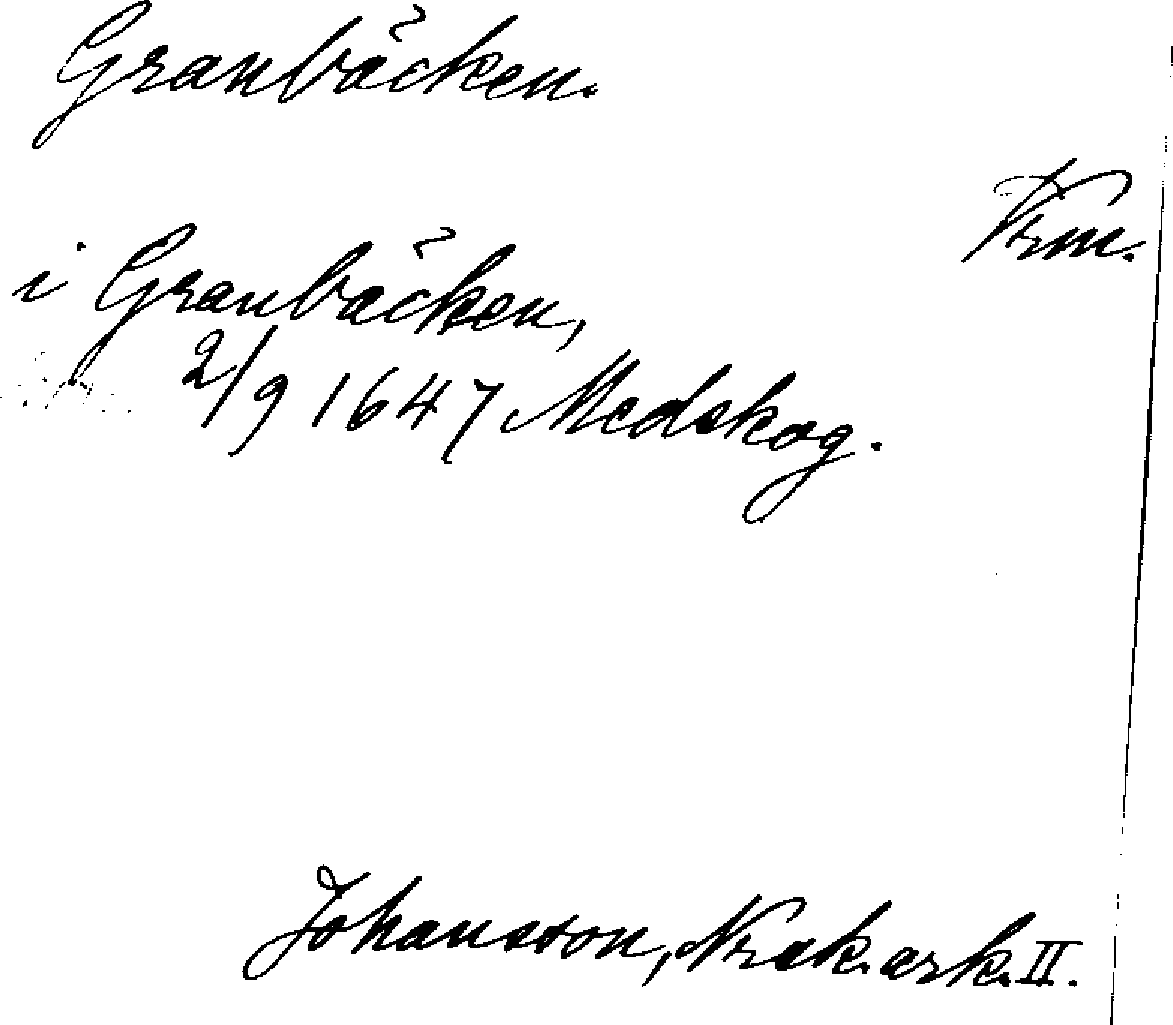 Granbäcken.
Vrm.
i Granbäcken,
2/9 1647 Medskog.
Johansson, Vrak.ark. II.